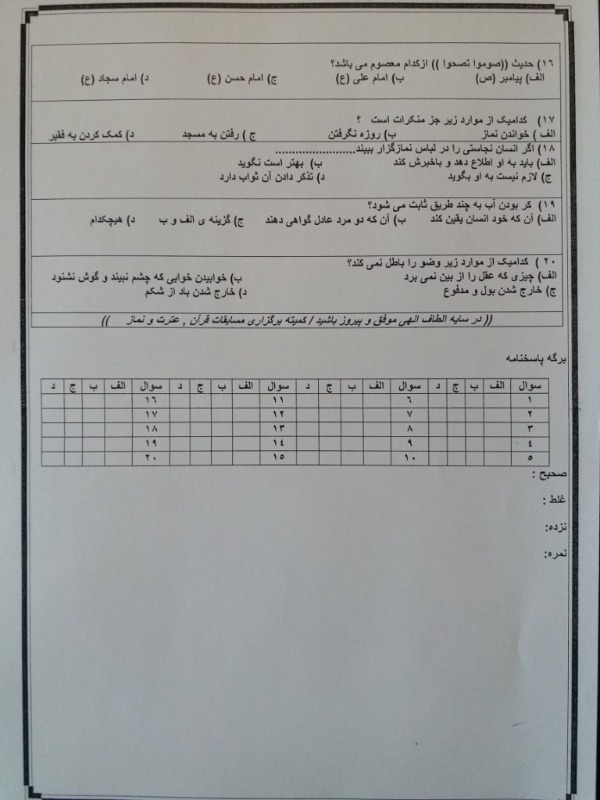 ۱۶) حدیث ((صوموا تصحوا )) ازکدام معصوم می باشد؟
الف) پیامبر (ص) ب) امام علی (ع) ج) امام حسن (ع) د) امام سجاد (ع)
۱۷) کدامیک از موارد زیر جز منکرات است ؟
الف ) خواندن نماز ب) روزه نگرفتن ج ) رفتن به مسجد د) کمک کردن به فقیر
۱۸) اگر انسان نجاستی را در لباس نمازگزار ببیند........................
الف) باید به او اطلاع دهد و باخبرش کند ب) بهتر است نگوید
ج) لازم نیست به او بگوید د) تذکر دادن آن ثواب دارد
۱۹) کر بودن آب به چند طریق ثابت می شود؟
الف) آن که خود انسان یقین کند ب) آن که دو مرد عادل گواهی دهند ج) گزینه ی الف و ب د) هیچکدام
۲۰ ) کدامیک از موارد زیر وضو را باطل نمی کند؟
الف) چیزی که عقل را از بین نمی برد ب) خوابیدن خوابی که چشم نبیند و گوش نشنود
ج) خارج شدن بول و مدفوع د) خارج شدن باد از شکم
(( در سایه الطاف الهی موفق و پیروز باشید / کمیته برگزاری مسابقات قرآن , عترت و نماز ))
برگه پاسخنامه
سوال الف ب ج د سوال الف ب ج د سوال الف ب ج د سوال الف ب ج د
۱ ۶ ۱۱ ۱۶
۲ ۷ ۱۲ ۱۷
۳ ۸ ۱۳ ۱۸
۴ ۹ ۱۴ ۱۹
۵ ۱۰ ۱۵ ۲۰
صحیح :
غلط :
نزده:
نمره: